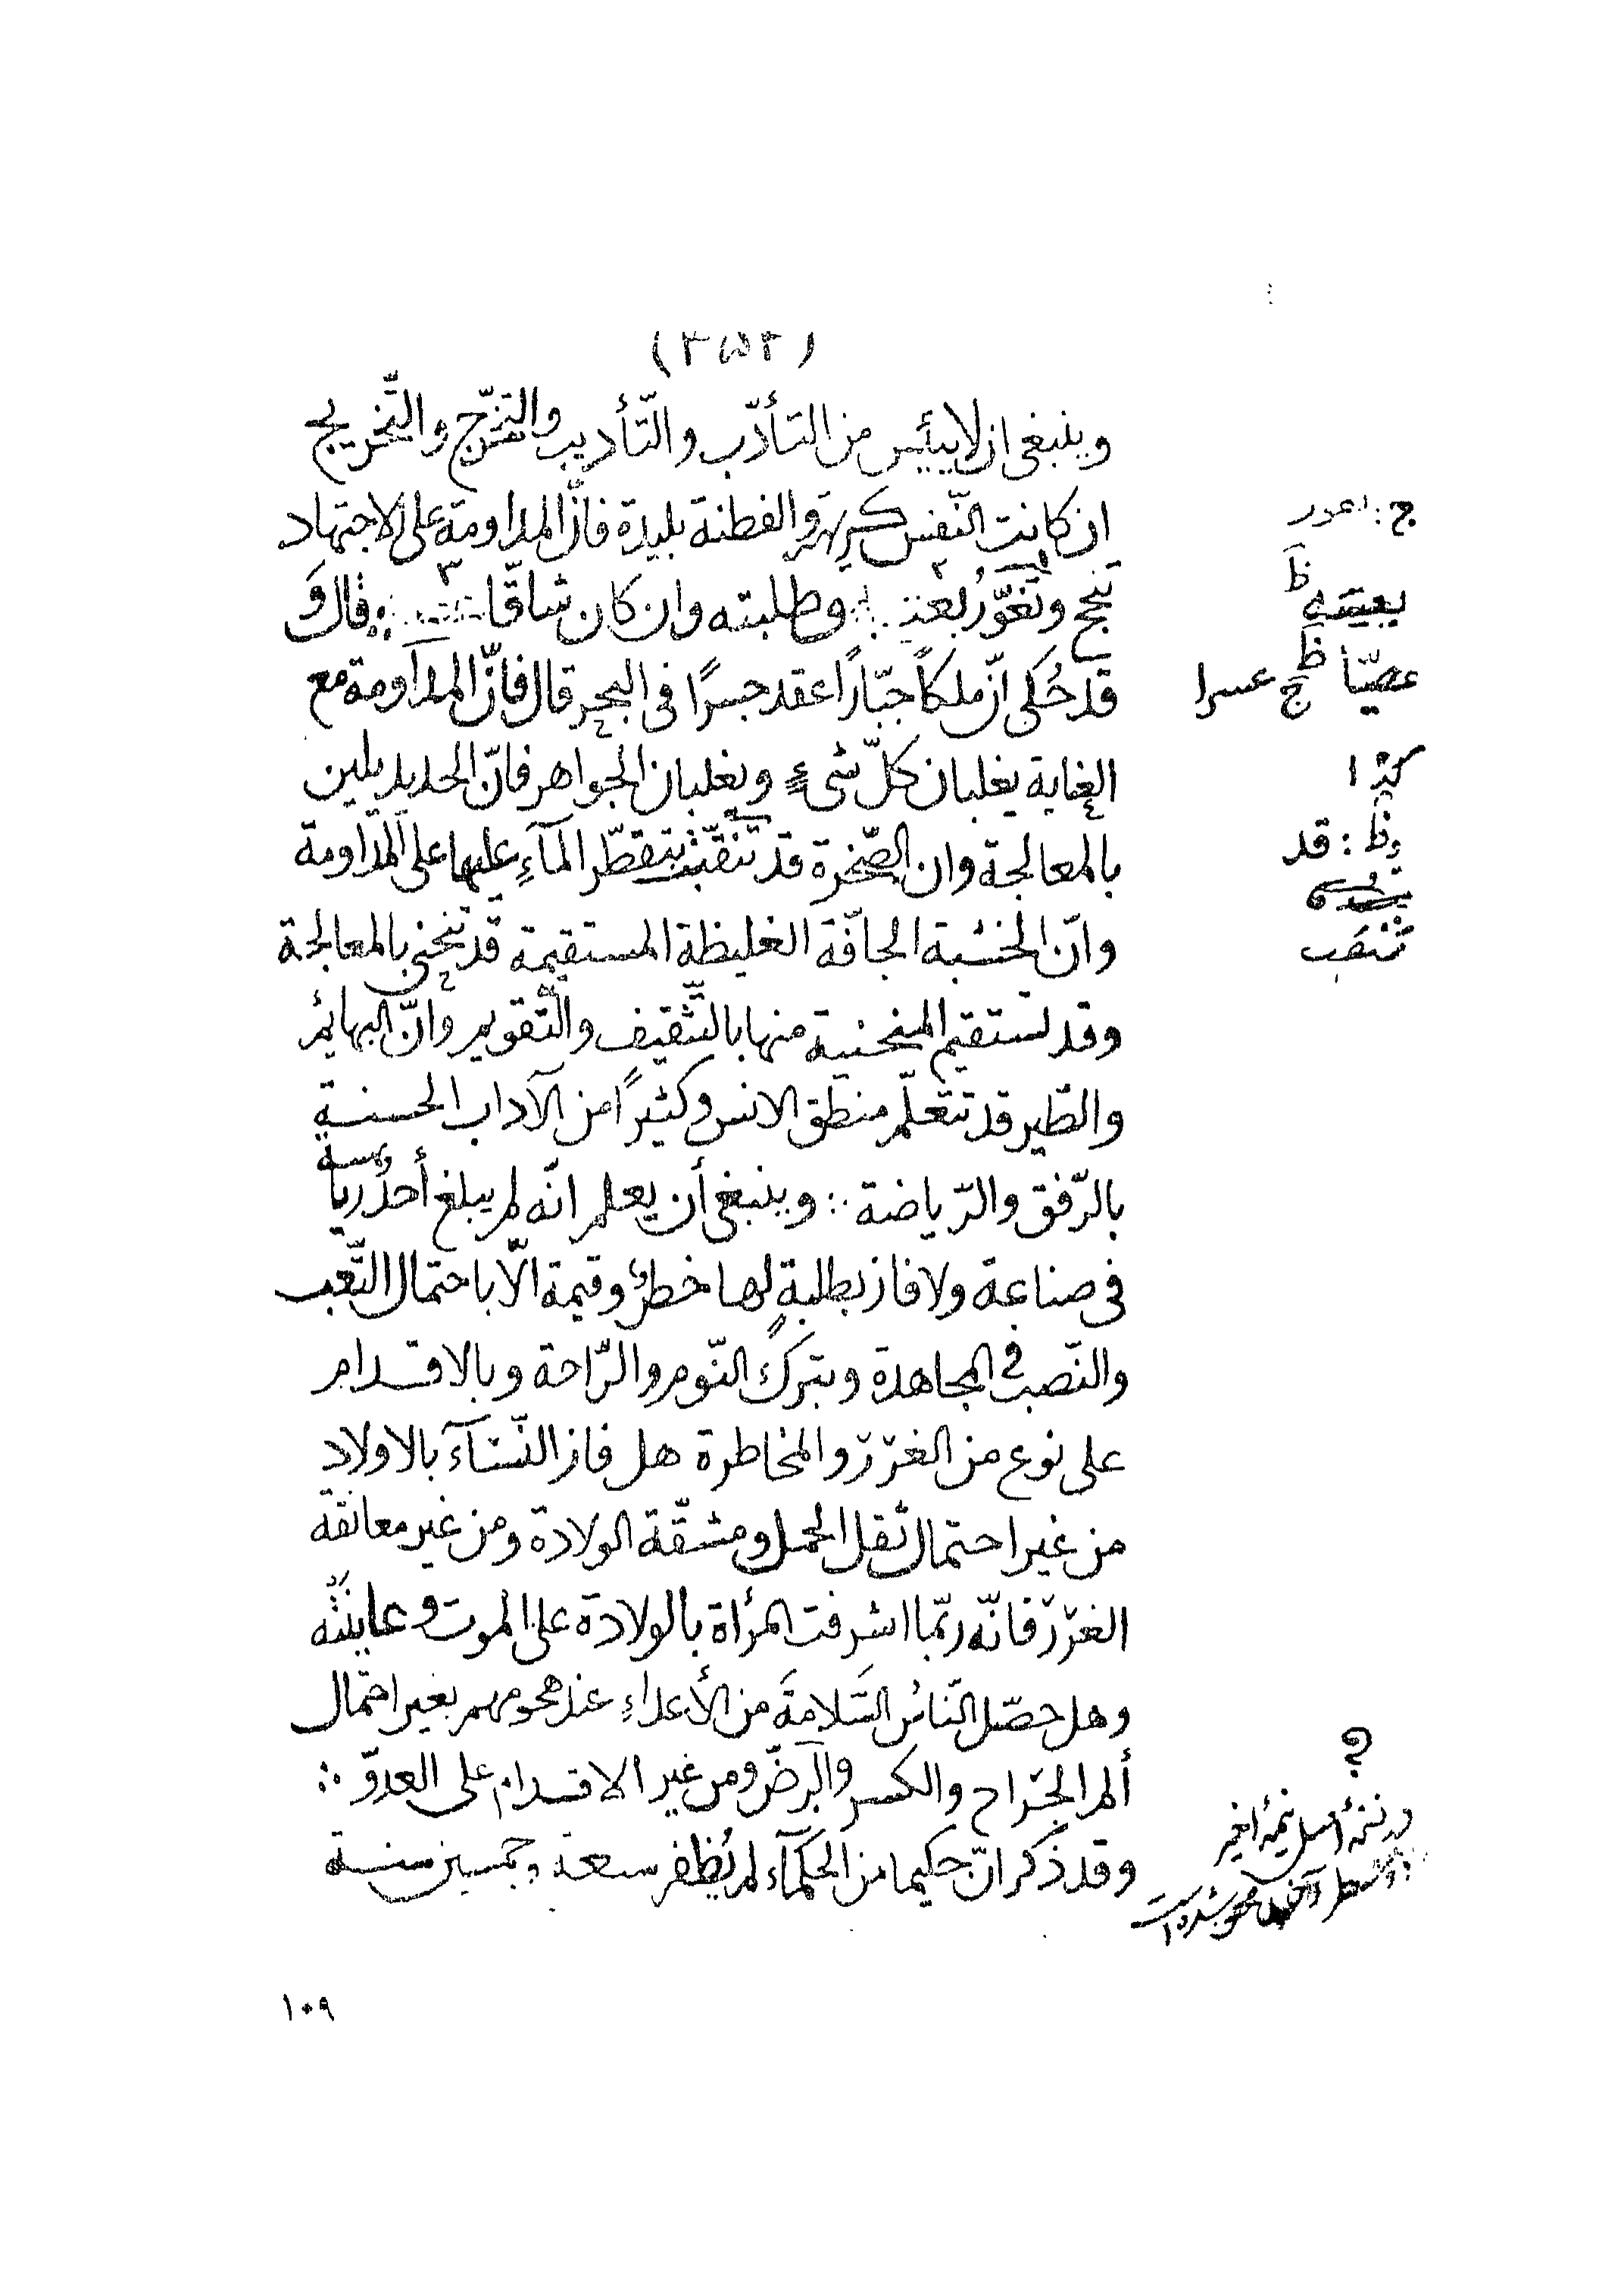 (٣٥٢)
وينبغى ان لا ييئس من التأدّب والتّأديب والتخرّج والتّخريج
ان كانت النّفس كريهة والفطنة بليدة فانّ المداومة على الاجتهاد
تنجح وتغوّر وطلبته وان كان شاقّا قال وَ
قد حُكى انّ ملكاً جبّاراً عقد جسرًا فى البحر قال فانّ المداومة مع
الغاية يغلبان كلّ شىءٍ ويغلبان الجواهر فانّ الحديد يلين
بالمعالجة وان الصّخرة قد تنقّب بتقطّر المآءِ عليها على المداومة
وانّ الخشبة الجافّة الغليظة المستقيمة قد تنحنى بالمعالجة
وقد تستقيم المنحنية منها بالتّثقيف والتّقويم وانّ البهائم
والطّير قد تتعلّم منطق الانس وكثيرًا من الآداب الحسنة
بالرّفق والرّياضة ∴ وينبغى أن يعلم انّه لم يبلغ أحدٌ رياسة
فى صناعة ولا فاز بطلبةٍ لها خطرٌ وقيمة الّا باحتمال التّعب
والنّصب فى المجاهدة وبترك النّوم والرّاحة وبالاقدام
على نوع من الغرر والمخاطرة هل فاز النّسآء بالاولاد
من غير احتمال ثقل الحمل ومشقّة الولادة ومن غير معانقة
الغرر فانّه ربّما اشرفت المرأة بالولادة على الموت وعاينته
وهل حصّل النّاسُ السّلامةَ من الأعداءِ عند هجومهم بغير احتمال
ألم الجراح والكسر والرضّ ومن غير الاقدام على العدوّ ∴
وقد ذكر انّ حكيما من الحكمآء لم يُظفر سعة وخمسين سنة
ج:
ظ
عصيّا ظ ج عسرا
ظ: قد
تنثقب
؟
١٠٩